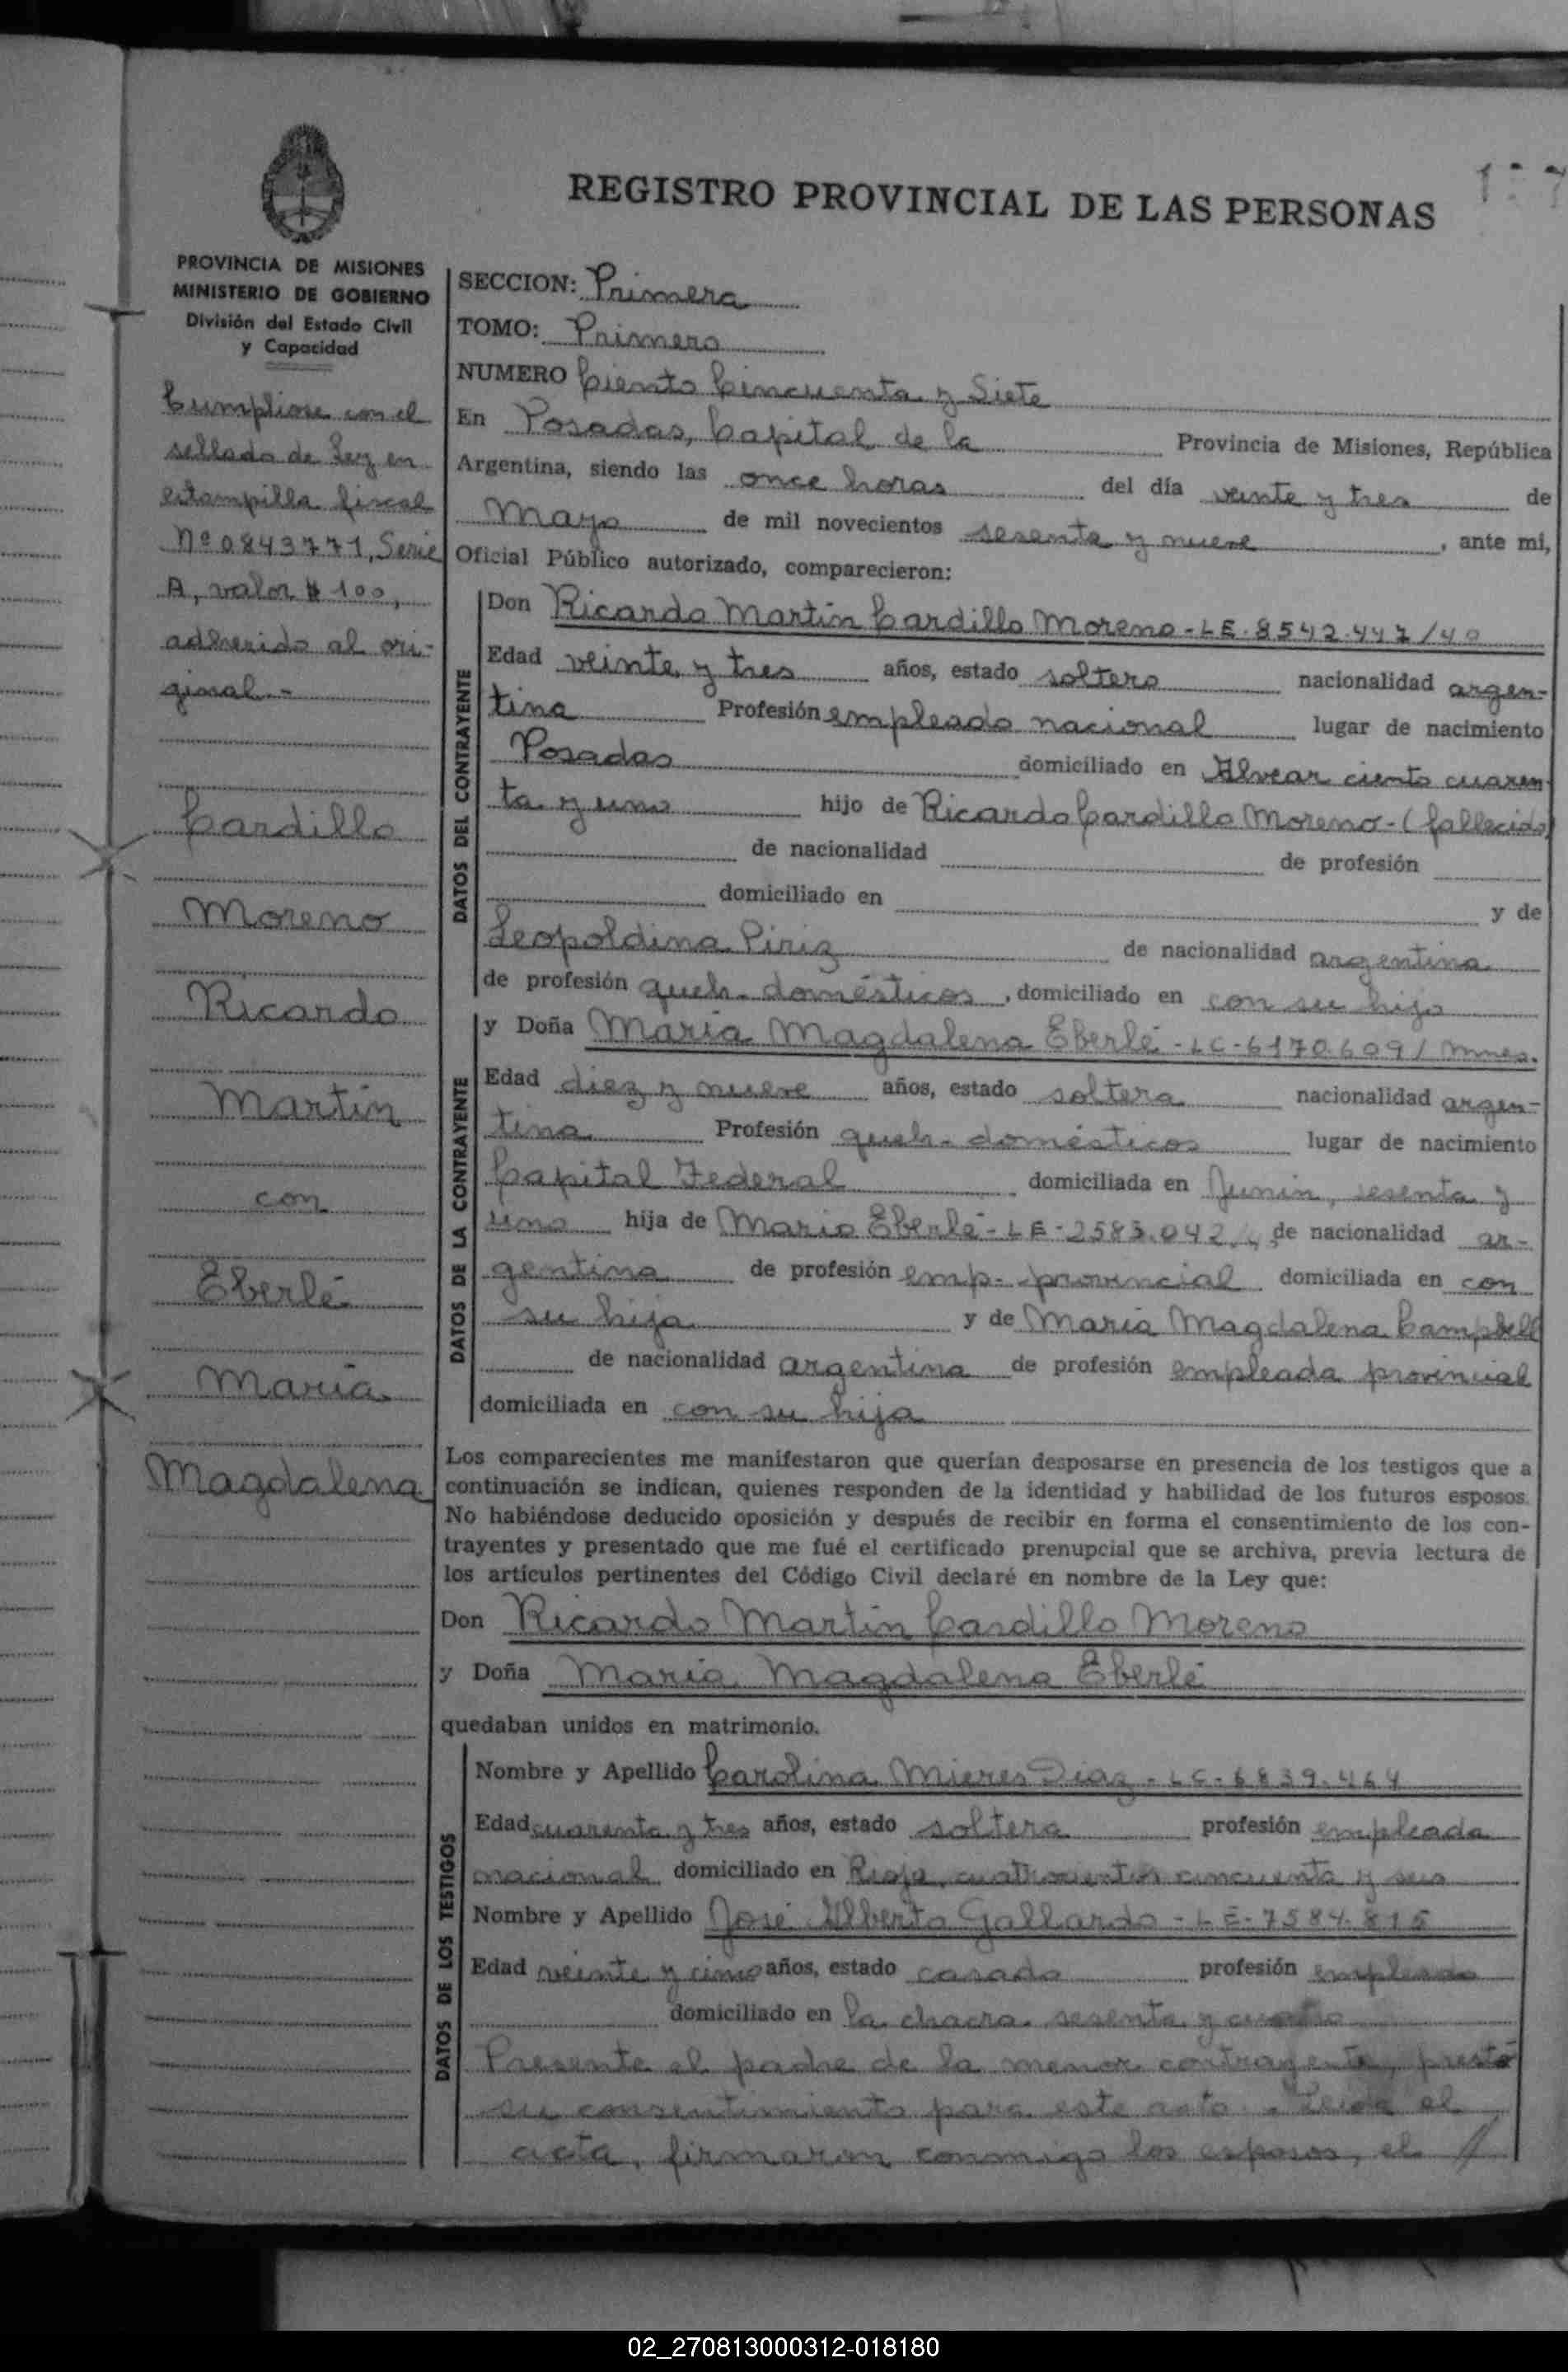 REGISTRO PROVINCIAL DE LAS PERSONAS
PROVINCIA DE MISIONES
MINISTERIO DE GOBIERNO
División del Estado Civil
y Capacidad
Cumpliose con el
sellado de Ley en
estampilla fiscal
Nº 0843771, Serie
A, valor $ 100,
adherido al ori-
ginal.-
Cardillo
Moreno
Ricardo
Martín
con
Eberlé
María
Magdalena
SECCION: Primera
TOMO: Primero
NUMERO Ciento Cincuenta y Siete
En Posadas, Capital de la Provincia de Misiones, República
Argentina, siendo las once horas del día veinte y tres de
Mayo de mil novecientos sesenta y nueve, ante mi,
Oficial Público autorizado, comparecieron:
DATOS DEL CONTRAYENTE
Don Ricardo Martín Cardillo Moreno - LE. 8542.447/40
Edad veinte y tres años, estado soltero nacionalidad argen-
tina Profesión empleado nacional lugar de nacimiento
Posadas domiciliado en Alvear ciento cuaren-
ta y uno hijo de Ricardo Cardillo Moreno - (fallecido)
de nacionalidad de profesión
domiciliado en y de
Leopoldina Piriz de nacionalidad argentina
de profesión queh. domésticos, domiciliado en con su hijo
DATOS DE LA CONTRAYENTE
y Doña María Magdalena Eberlé - LC - 6170.609/ Mnes.
Edad diez y nueve años, estado soltera nacionalidad argen-
tina Profesión queh. domésticos lugar de nacimiento
Capital Federal domiciliada en Junín, sesenta y
uno hija de Mario Eberlé - LE - 2583.042, de nacionalidad ar-
gentina de profesión emp. provincial domiciliada en con
su hija y de María Magdalena Campbell
de nacionalidad argentina de profesión empleada provincial
domiciliada en con su hija
Los comparecientes me manifestaron que querían desposarse en presencia de los testigos que a
continuación se indican, quienes responden de la identidad y habilidad de los futuros esposos.
No habiéndose deducido oposición y después de recibir en forma el consentimiento de los con-
trayentes y presentado que me fué el certificado prenupcial que se archiva, previa lectura de
los artículos pertinentes del Código Civil declaré en nombre de la Ley que:
Don Ricardo Martín Cardillo Moreno
y Doña María Magdalena Eberlé
quedaban unidos en matrimonio.
DATOS DE LOS TESTIGOS
Nombre y Apellido Carolina Mieres Diaz - LC - 6839.464
Edad cuarenta y tres años, estado soltera profesión empleada
nacional domiciliado en Rioja, cuatrocientos cincuenta y seis
Nombre y Apellido José Alberto Gallardo - LE - 7584.815
Edad veinte y cinco años, estado casado profesión empleado
domiciliado en la chacra sesenta y cuatro
Presente el padre de la menor contrayente, prestó
su consentimiento para este acto. Leída el
acta, firmaron conmigo los esposos, el /
02_270813000312-018180